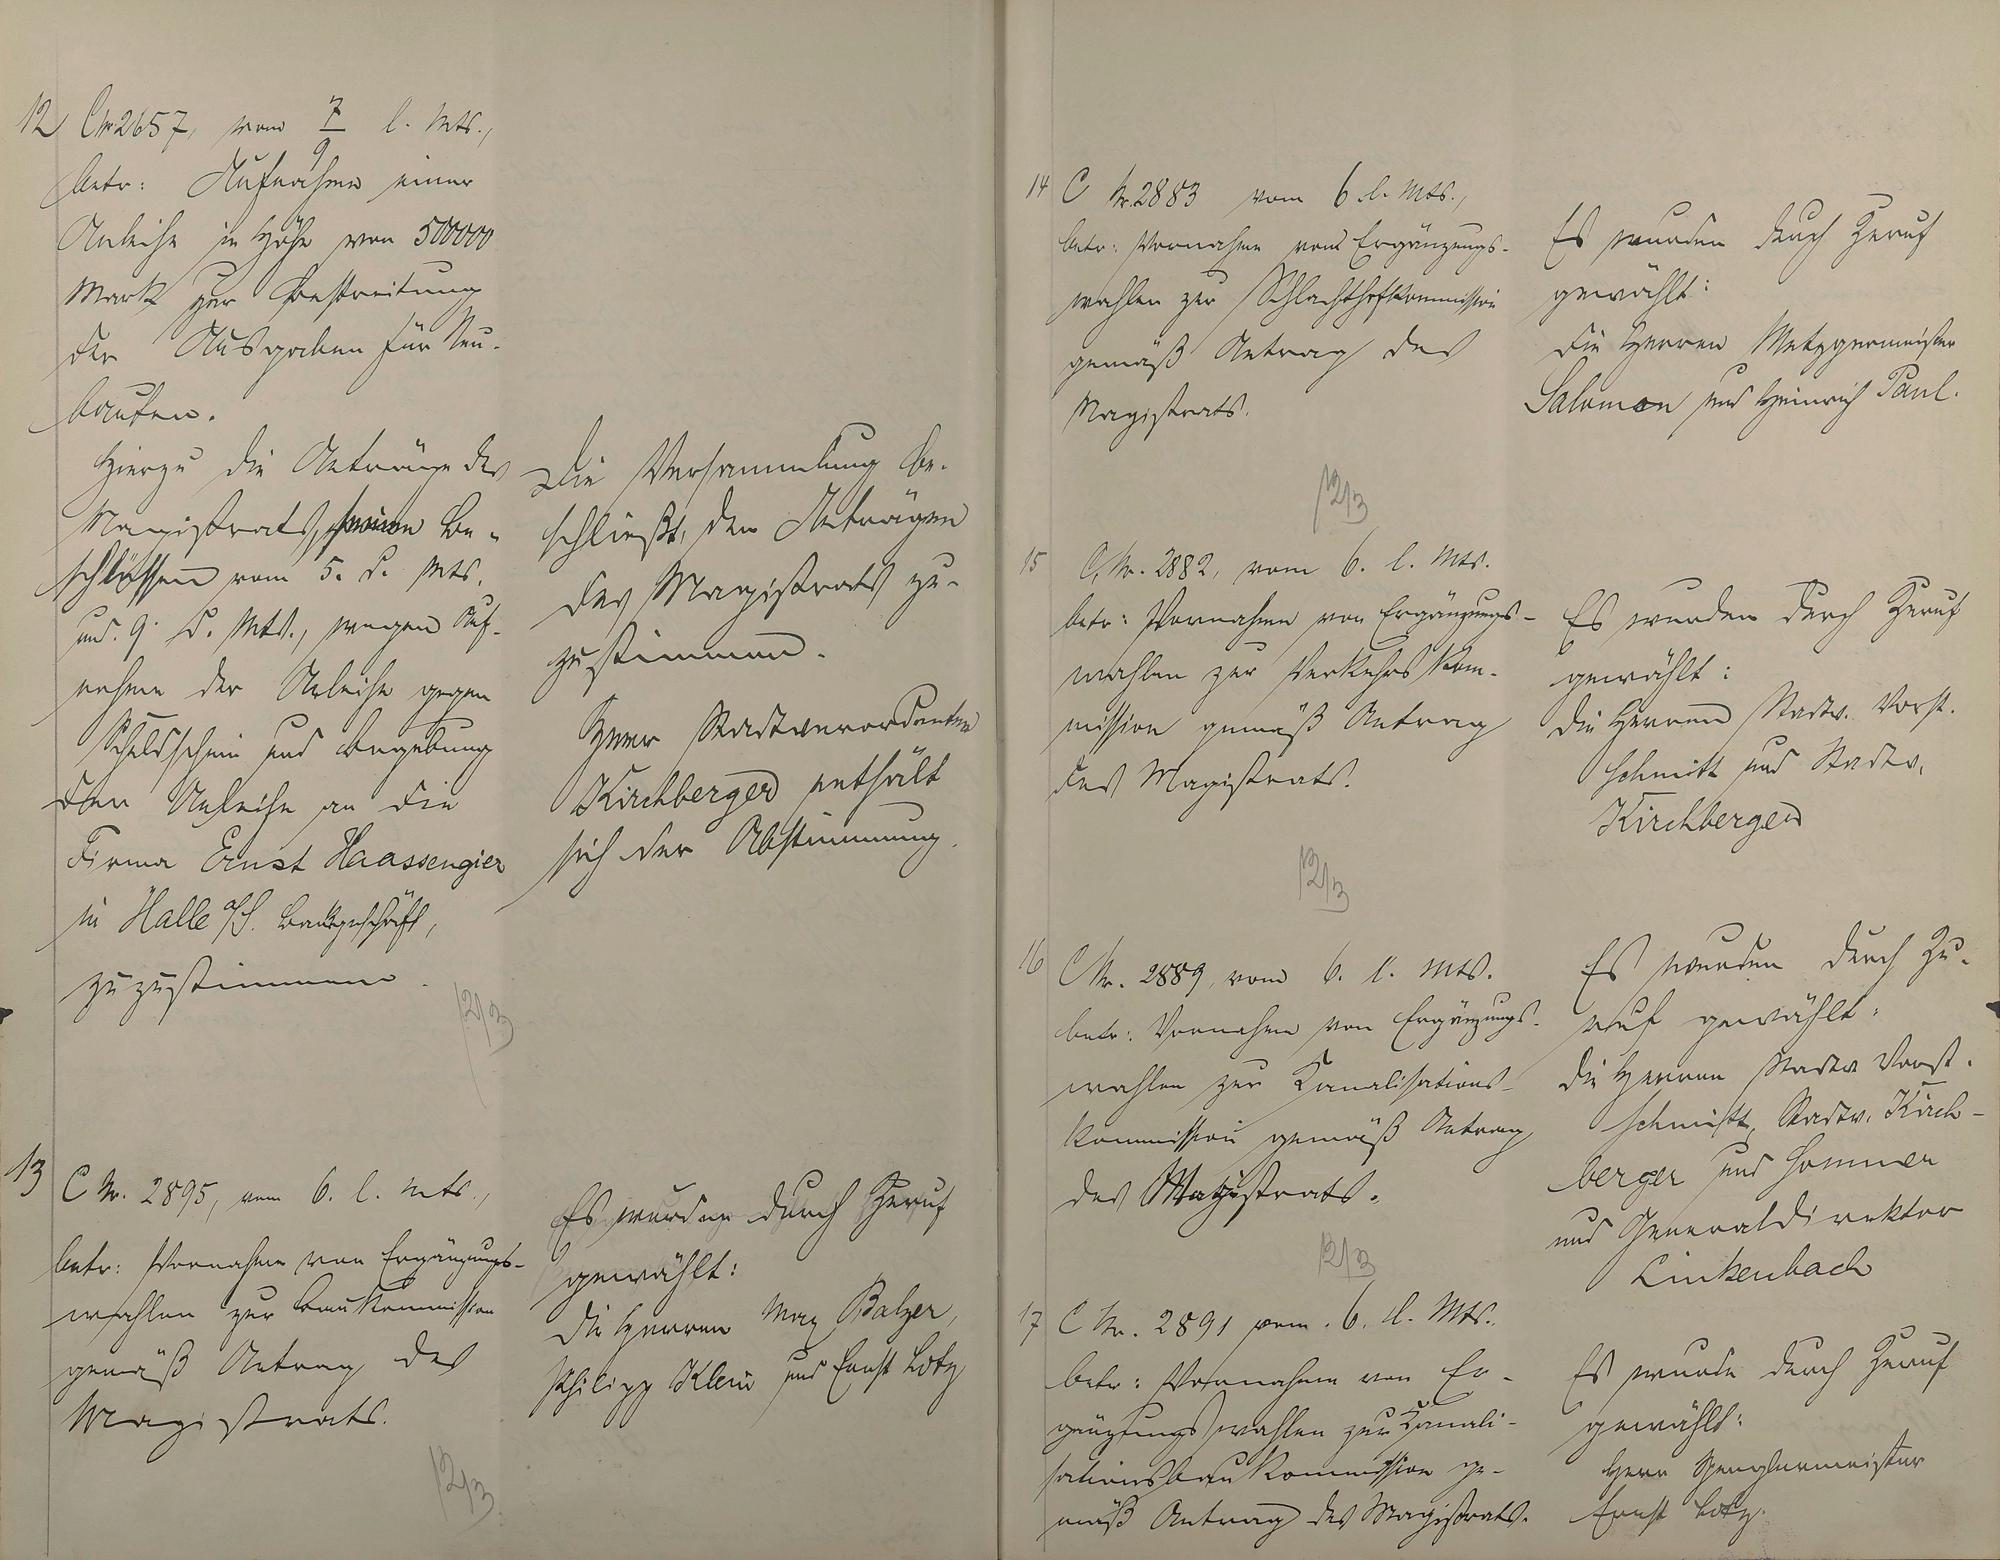 12 C Nr. 2657, vom 7/9 l. Mts.,
betr: Aufnahme einer
Anleihe in Höhe von 500000
Mark zur Bestreitung
der Ausgaben für Neu-
bauten.
Hierzu die Anträge des
Magistrats, seinen Be-
schlüssen vom 5. d. Mts.
und 9. d. Mts., wegen Auf-
nahme der Anleihe gegen
Schuldschein und Begebung
der Anleihe an die
Firma Ernst Haassengier
in Halle a/S. Bankgeschäft,
zuzustimmen.
12/3
Die Versammlung be-
schließt, den Anträgen
des Magistrats zu-
zustimmen.
Herr Stadtverordneter
Kirchberger enthält
sich der Abstimmung.
13 C Nr. 2895, vom 6. l. Mts.,
betr: Vornahme von Ergänzungs-
wahlen zur Baukommission
gemäß Antrag des
Magistrats.
12/3
Es wurden durch Zuruf
gewählt:
die Herren Max Balzer,
Philipp Klein und Ernst Lotz
14 C Nr. 2883 vom 6 l. Mts.,
betr: Vornahme von Ergänzungs-
wahlen zur Schlachthofkommission
gemäß Antrag des
Magistrats.
12/3
Es wurden durch Zuruf
gewählt:
die Herren Metzgermeister
Salomon und Heinrich Paul.
15 C. Nr. 2882, vom 6. l. Mts.
betr: Vornahme von Ergänzungs-
wahlen zur Verkehrskom-
mission gemäß Antrag
des Magistrats.
12/3
Es wurden durch Zuruf
gewählt:
die Herren Stadtv. Vorst.
Schmitt und Stadtv.
Kirchberger
16 C Nr. 2889, vom 6. l. Mts.
betr: Vornahme von Ergänzungs-
wahlen zur Kanalisations-
kommission gemäß Antrag
des Magistrats.
12/3
Es wurden durch Zu-
ruf gewählt:
die Herren Stadtv Vorst.
Schmitt, Stadtv. Kirch-
berger und Sommer
und Generaldirektor
Linkenbach
17 C Nr. 2891 vom 6. l. Mts.
betr: Vornahme von Er-
gänzungswahlen zur Kanali-
sationsbaukommission ge-
mäß Antrag des Magistrats.
Es wurde durch Zuruf
gewählt:
Herr Spenglermeister
Ernst Lotz.